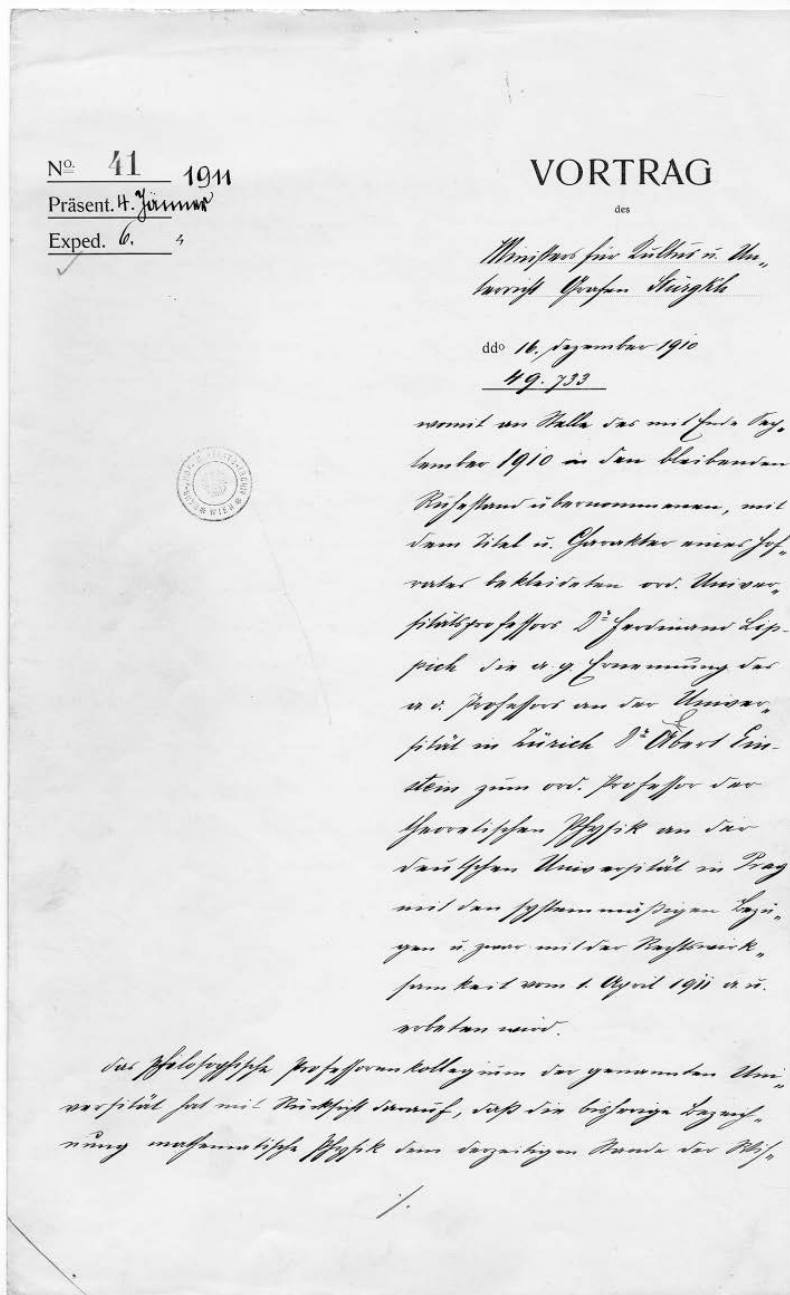 No. 41 1911
Präsent. 4. Jänner
Exped. 6. "
VORTRAG
des
Ministers für Kultus u. Un-
terricht Grafen Stürgkh
ddo 16. Dezember 1910
49.733
womit an Stelle des mit Ende Sep-
tember 1910 in den bleibenden
Ruhestand übernommenen, mit
dem Titel u. Charakter eines Hof-
rates bekleideten ord. Univer-
sitätsprofessors Dr Ferdinand Lip-
pich die a. g. Ernennung des
a. o. Professors an der Univer-
sität in Zürich Dr Albert Ein-
stein zum ord. Professor der
theoretischen Physik an der
deutschen Universität in Prag
mit den systemmäßigen Bezü-
gen u. zwar mit der Rechtswirk-
samkeit vom 1. April 1911 a. u.
erbeten wird.
Das philosophische Professorenkollegium der genannten Uni-
versität hat mit Rücksicht darauf, daß die bisherige Bezeich-
nung mathematische Physik dem derzeitigen Stande der Wis-
./.
WIEN